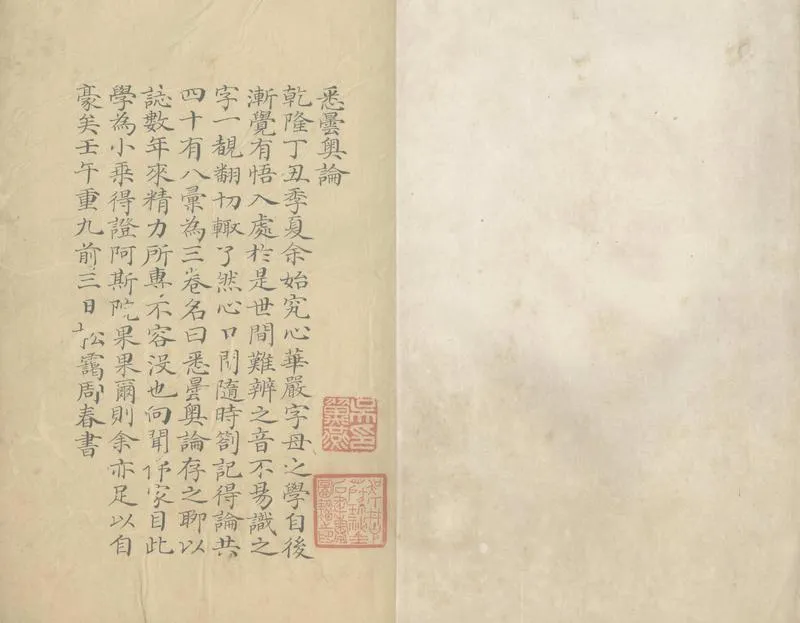 悉曇奧論
乾隆丁丑季夏余始究心華嚴字母之學自後
漸覺有悟入處於是世間難辨之音不易識之
字一覩翻切輒了然心口間隨時劄記得論共
四十有八彙為三卷名曰悉曇奧論存之聊以
誌數年來精力所專不容没也向聞佛家目此
學為小乘得證阿斯陀果果爾則余亦足以自
豪矣壬午重九前三日松靄周春書